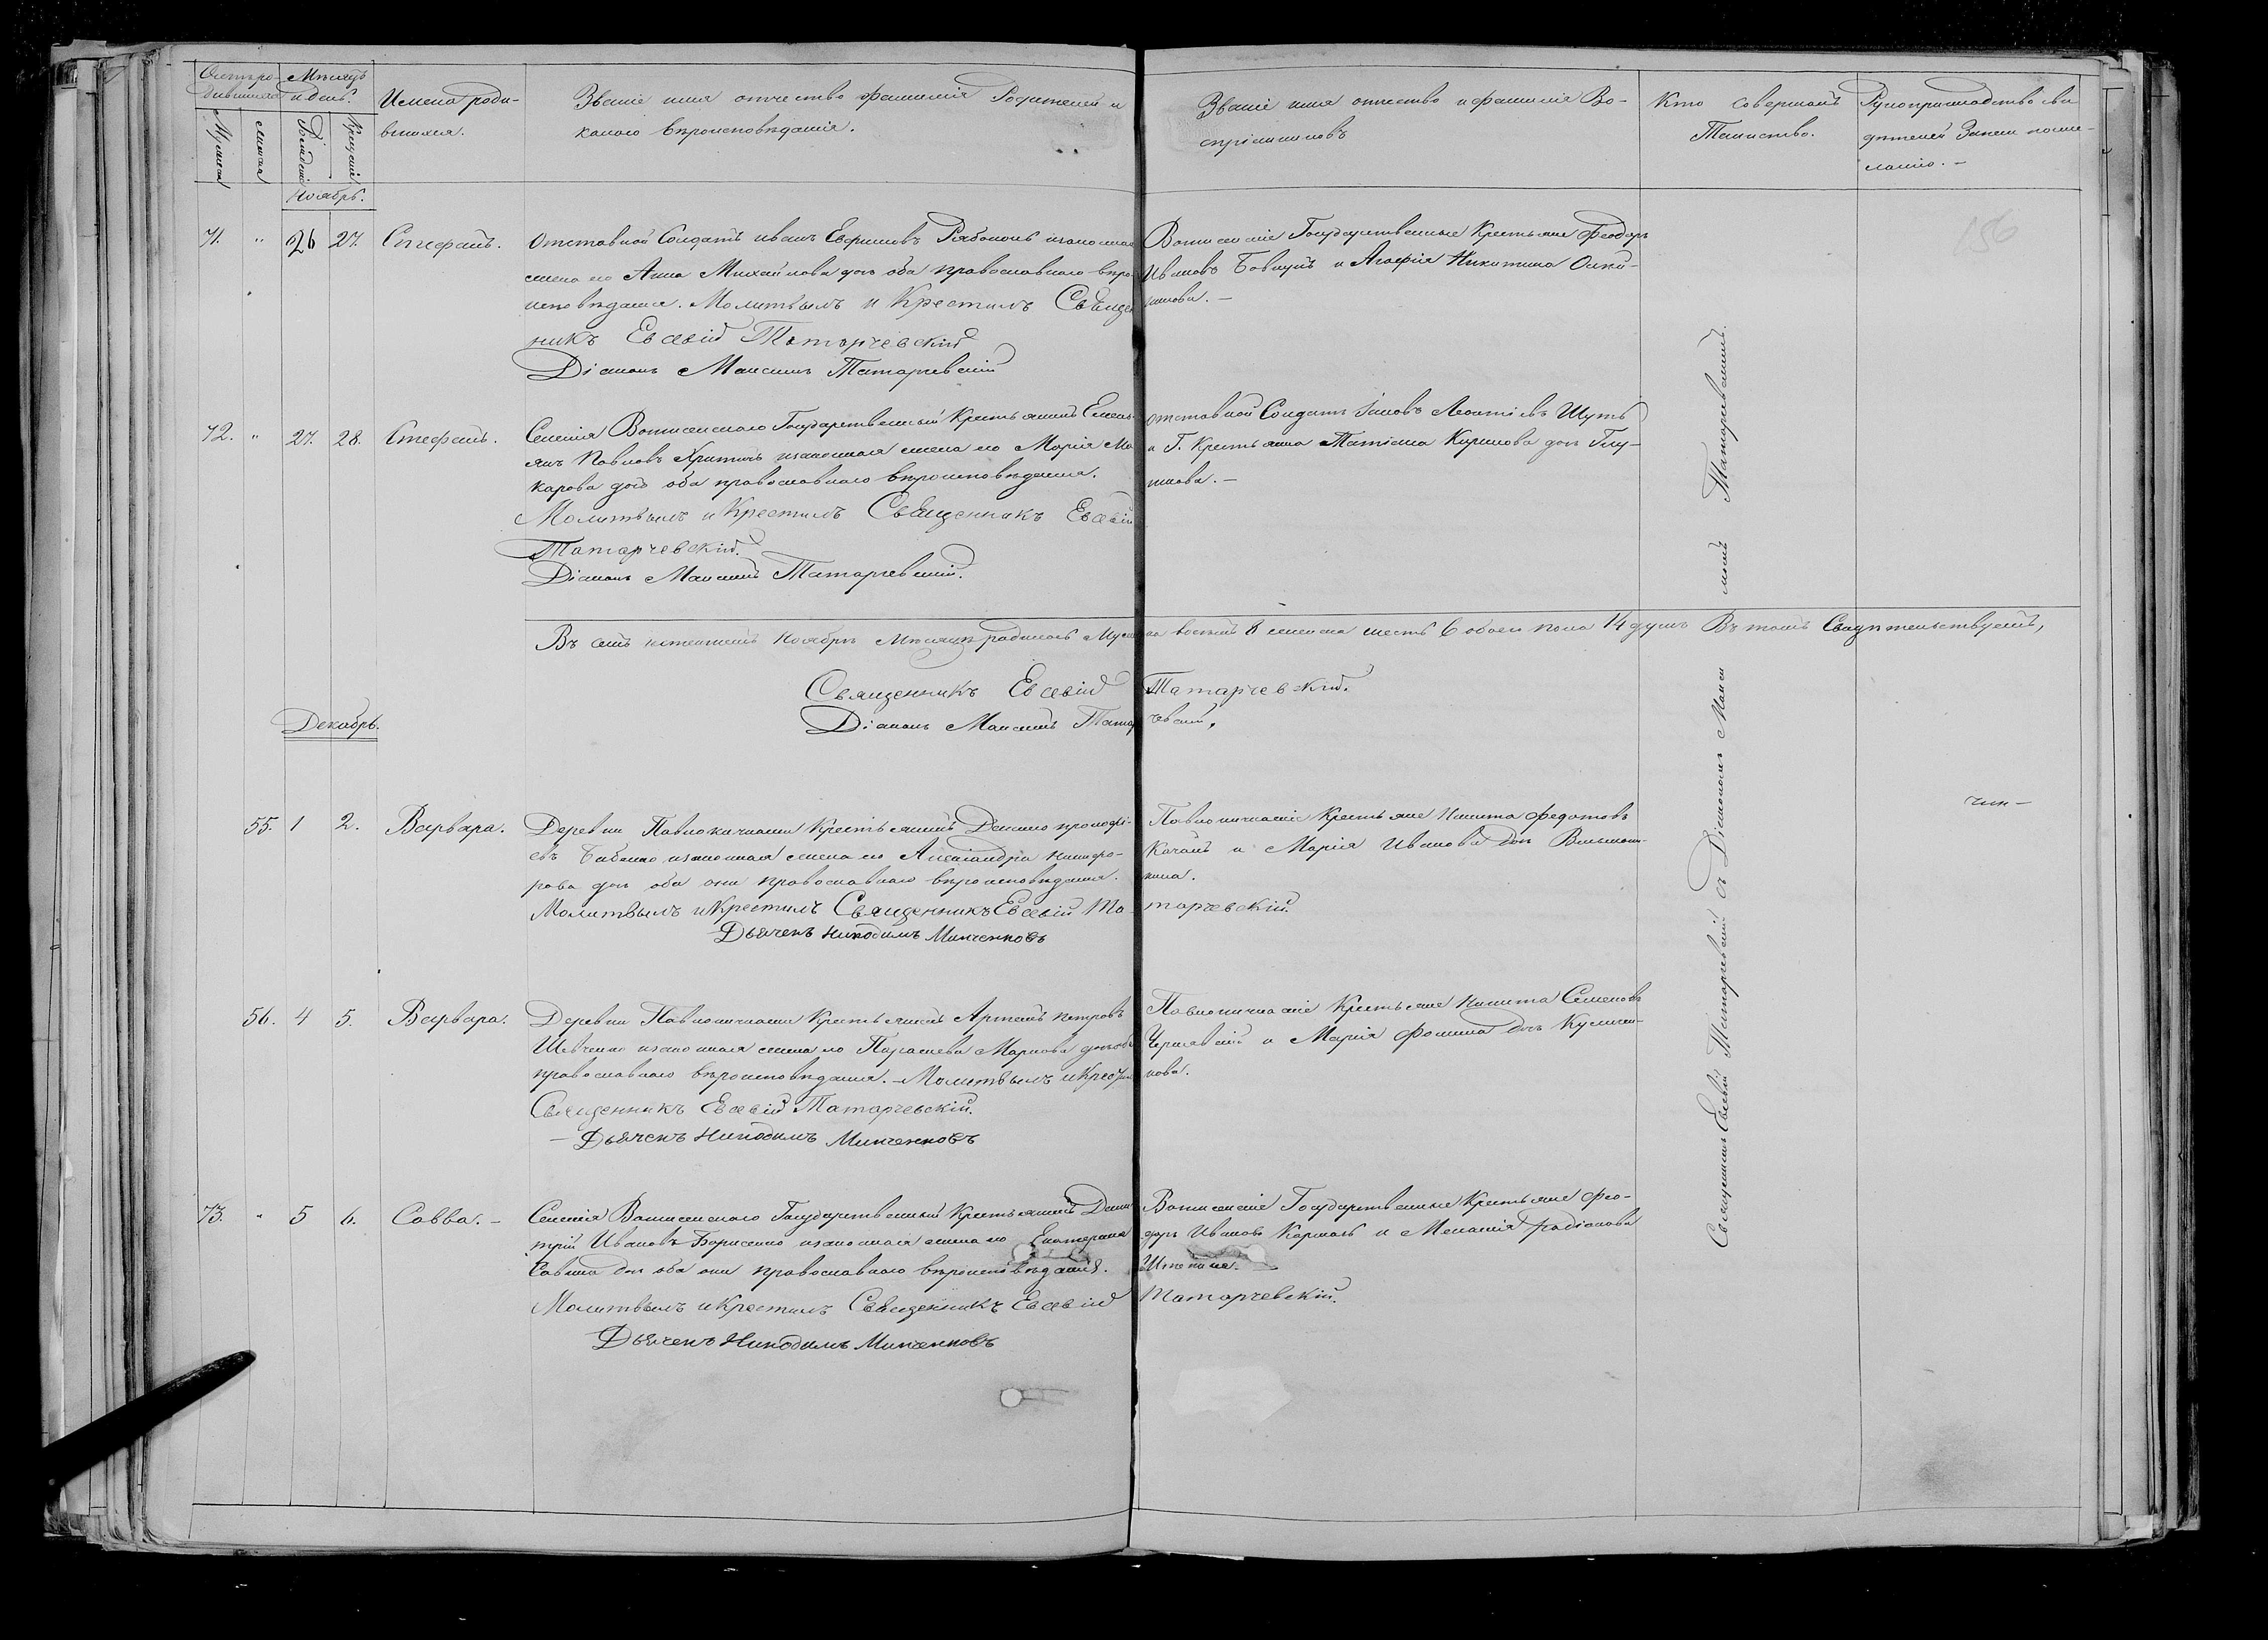 Счетъ ро-
дившихся
Мѣсяцъ
и день.
Мужеска
женска
Рожденія
Крещенія
Имена роди-
вшихся.
Званіе имя отчество фамилія Родителей и
какого вѣроисповѣданія.
Званіе имя отчество и фамилія Во-
спріимниковъ
Кто совершалъ
Таинство.
Рукоприкладство сви
дѣтелей Записи по же-
ланію. –
Ноябрь.
156
71. " 26 27. Стефанъ.
Отставной Солдатъ Иванъ Евфимовъ Рябоконь и законная
жена его Анна Михайлова дочь оба православнаго вѣро-
исповѣданія. Молитвилъ и Крестилъ Священ
никъ Евсевій Татарчевскій
Діаконъ Максимъ Татарчевскій
Государственные Крестьяне Феодоръ
Ивановъ и Агафія Никитина
72. " 27. 28. Стефанъ.
Селенія Государственный Крестьянинъ Емель-
янъ Павловъ и законная жена его Марія Ма
карова дочь оба православнаго вѣроисповѣданія.
Молитвилъ и Крестилъ Священникъ Евсевій
Татарчевскій.
Діаконъ Максимъ Татарчевскій.
Отставной Солдатъ Іаковъ Леонтіевъ Шуть
и Г. Крестьянка Татіана Кирилова дочь
Въ семъ Ноябрѣ Мѣсяцѣ родилось Муже
ска восемь 8 женска шесть 6 обоего пола 14 душъ Въ томъ Свидѣтельствуемъ,
Священникъ Евсевій Татарчевскій.
Діаконъ Максимъ Татарчевскій,
Декабрь.
55. 1 2. Варвара.
Деревни Крестьянинъ
Бабенко и законная жена его Александра Никифо-
рова дочь оба они православнаго вѣроисповѣданія.
Молитвилъ и Крестилъ Священникъ Евсевій Та-
тарчевскій.
Дьячекъ Никодимъ Минченковъ
Крестьяне Никита Федотовъ
Качанъ и Марія Иванова дочь
чин-
56. 4 5. Варвара.
Деревни Крестьянинъ Артемъ Петровъ
Шевченко и законная жена его Параскева Маркова дочь оба
православнаго вѣроисповѣданія. – Молитвилъ и Крестилъ
Священникъ Евсевій Татарчевскій.
– Дьячекъ Никодимъ Минченковъ
Крестьяне Никита Семеновъ
Чернявскій и Марія Фомина дочь
73. " 5 6. Савва. –
Селенія Государственный Крестьянинъ Дими
трій Ивановъ Борисенко и законная жена его Екатерина
Савина дочь оба они православнаго вѣроисповѣданія.
Молитвилъ и Крестилъ Священникъ Евсевій
Татарчевскій.
Дьячекъ Никодимъ Минченковъ
Государственные Крестьяне Фео-
доръ Ивановъ и Меланія Радіонова
Священникъ Евсевій Татарчевскій съ Діакономъ Макси
момъ Татарчевскимъ.